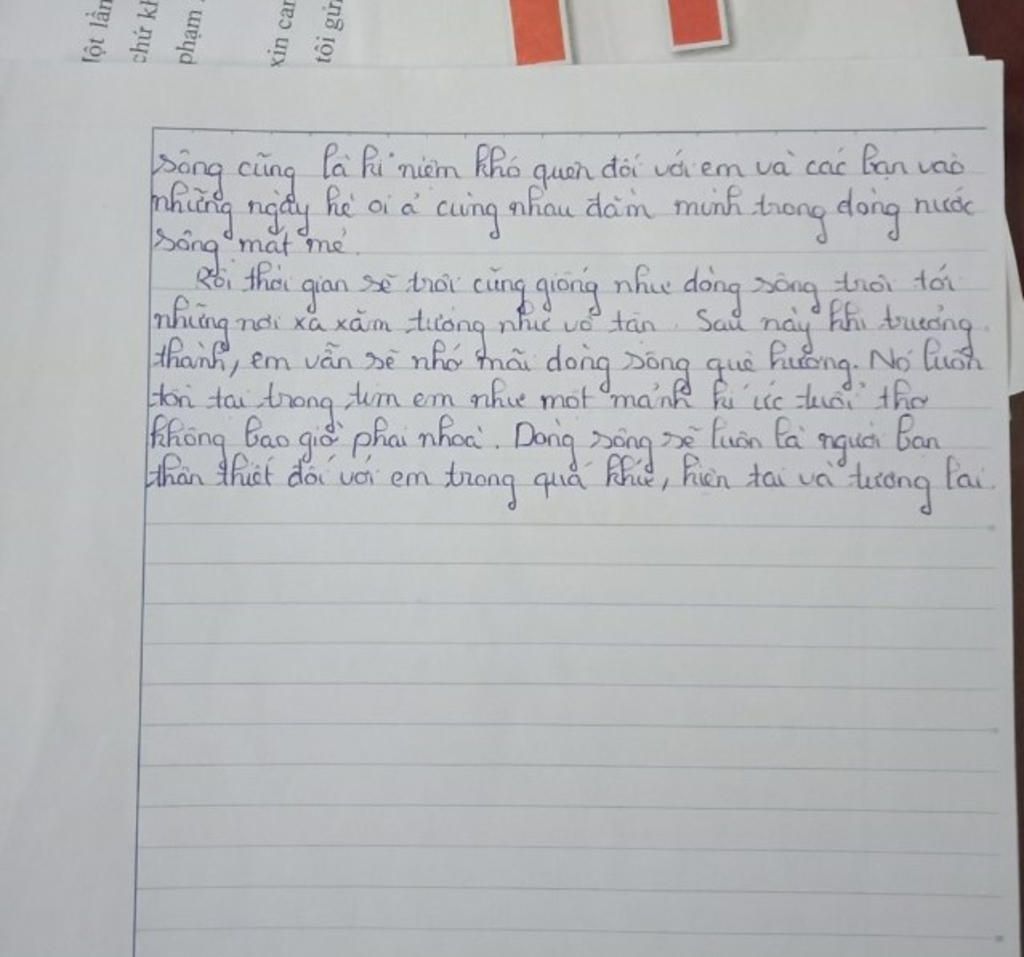 lột lần
chứ kh
phạm
xin can
tôi gửi
sông cũng là kỉ niệm khó quên đối với em và các bạn vào
những ngày hè oi ả cùng nhau đắm mình trong dòng nước
sông mát mẻ.
Rồi thời gian sẽ trôi cũng giống như dòng sông trôi tới
những nơi xa xăm tưởng như vô tận. Sau này khi trưởng
thành, em vẫn sẽ nhớ mãi dòng sông quê hương. Nó luôn
tồn tại trong tim em như một mảnh kí ức tuổi thơ
không bao giờ phai nhoà. Dòng sông sẽ luôn là người bạn
thân thiết đối với em trong quá khứ, hiện tại và tương lai.